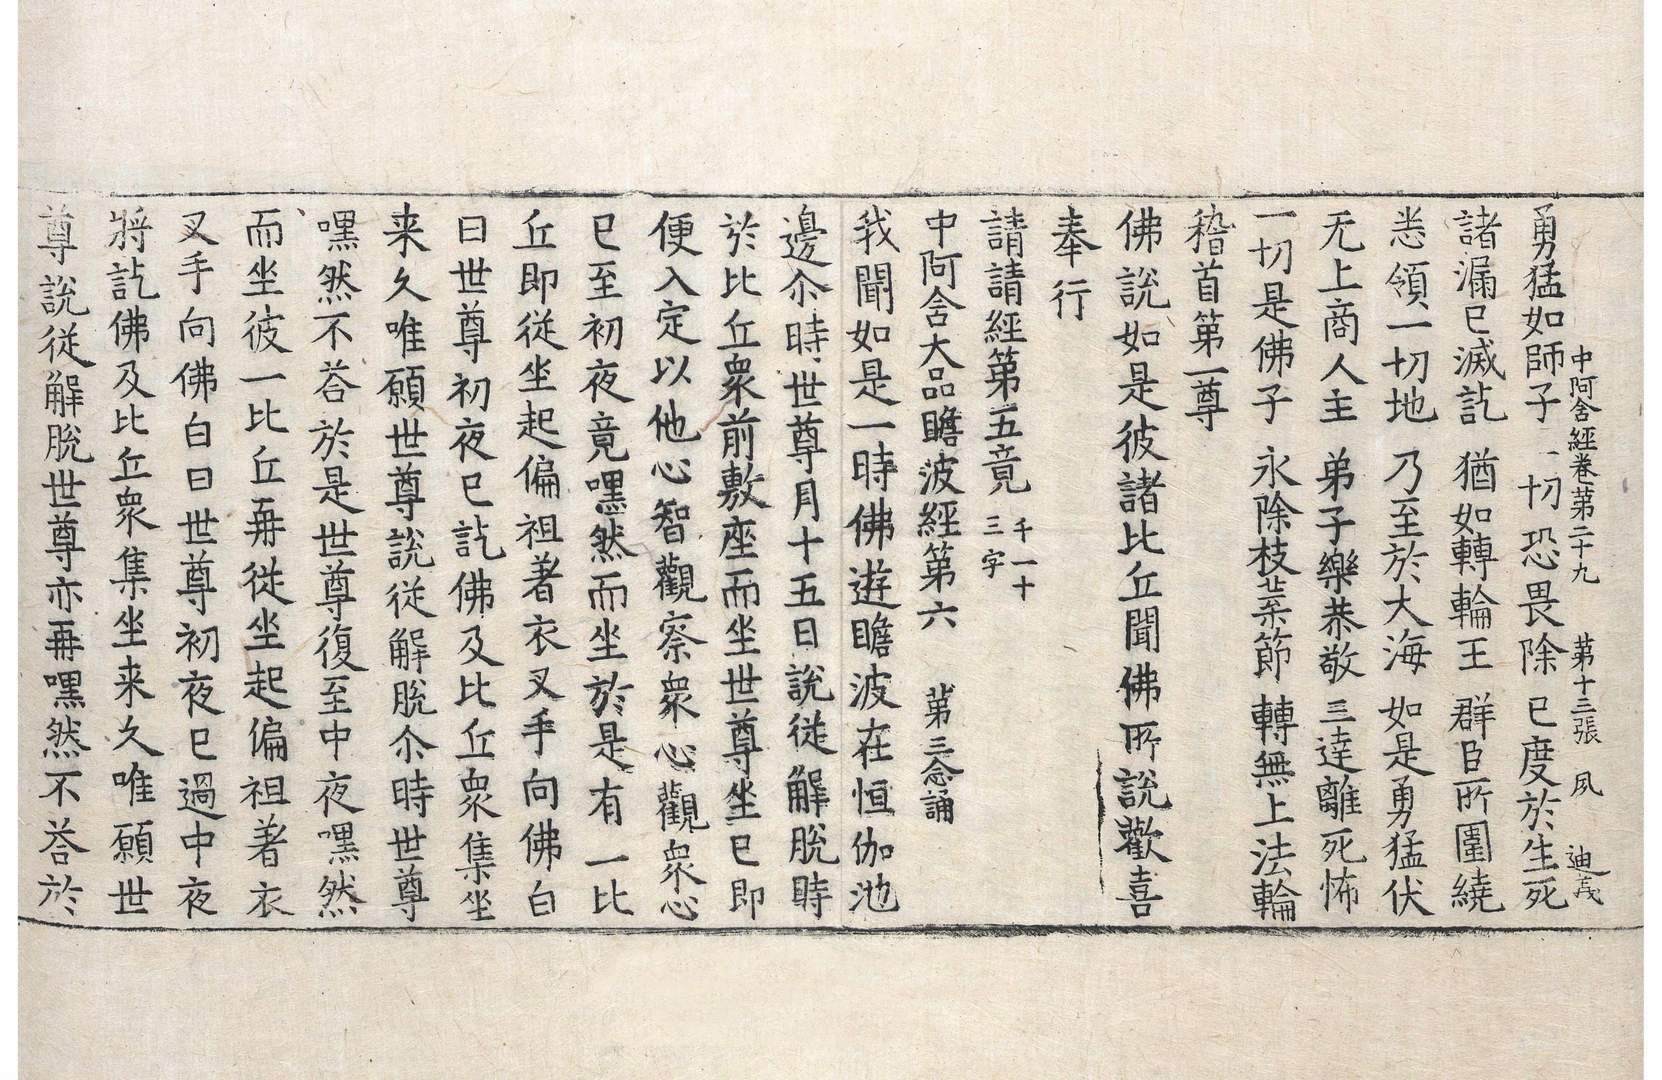 中阿含經卷第二十九　第十三張　夙　迪義
勇猛如師子　一切恐畏除　已度於生死
諸漏已滅訖　猶如轉輪王　群臣所圍繞
悉領一切地　乃至於大海　如是勇猛伏
无上商人主　弟子樂恭敬　三達離死怖
一切是佛子　永除枝葉節　轉無上法輪
稽首第一尊
佛說如是彼諸比丘聞佛所說歡喜
奉行
請請經第五竟　千一十三字
中阿含大品瞻波經第六　第三念誦
我聞如是一時佛遊瞻波在恒伽池
邊尒時世尊月十五日說從解脫時
於比丘衆前敷座而坐世尊坐已即
便入定以他心智觀察衆心觀衆心
已至初夜竟嘿然而坐於是有一比
丘即從坐起偏袒著衣叉手向佛白
曰世尊初夜已訖佛及比丘衆集坐
来久唯願世尊說從解脫尒時世尊
嘿然不荅於是世尊復至中夜嘿然
而坐彼一比丘再從坐起偏袒著衣
叉手向佛白曰世尊初夜已過中夜
將訖佛及比丘衆集坐来久唯願世
尊說從解脫世尊亦再嘿然不荅於